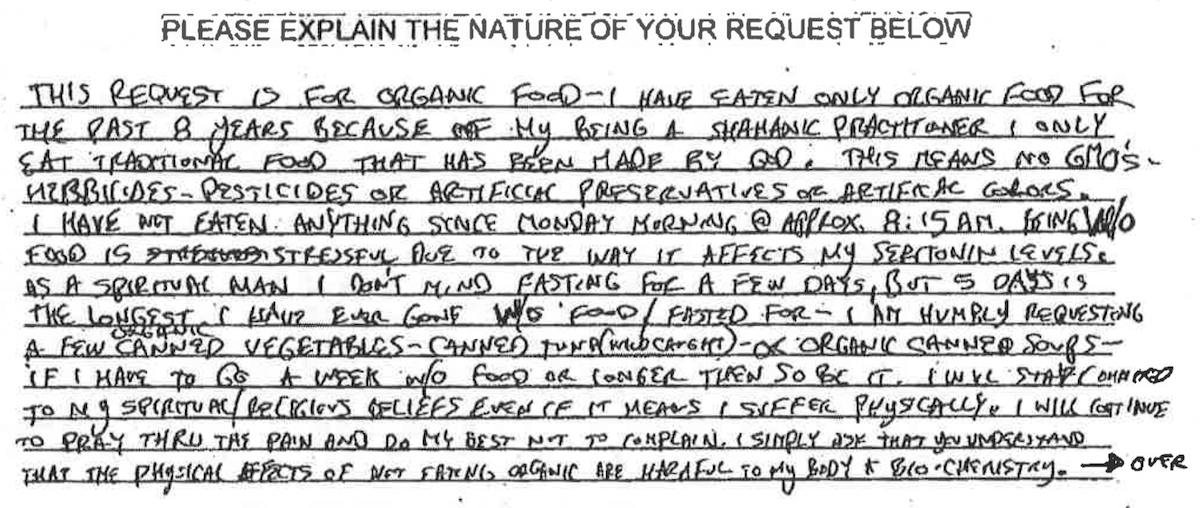 PLEASE EXPLAIN THE NATURE OF YOUR REQUEST BELOW
THIS REQUEST IS FOR ORGANIC FOOD - I HAVE EATEN ONLY ORGANIC FOOD FOR
THE PAST 8 YEARS BECAUSE OF MY BEING A SHAMANIC PRACTITIONER I ONLY
EAT TRADITIONAL FOOD THAT HAS BEEN MADE BY GOD. THIS MEANS NO GMO'S -
HERBICIDES - PESTICIDES OR ARTIFICIAL PRESERVATIVES OR ARTIFICAL COLORS.
I HAVE NOT EATEN ANYTHING SINCE MONDAY MORNING @ APPROX. 8:15 AM. BEING W/O
FOOD IS STRESSFUL DUE TO THE WAY IT AFFECTS MY SERTONIN LEVELS.
AS A SPIRITUAL MAN I DON'T MIND FASTING FOR A FEW DAYS, BUT 5 DAYS IS
THE LONGEST I HAVE EVER GONE W/O FOOD / FASTED FOR - I AM HUMBLY REQUESTING
A FEW ORGANIC CANNED VEGETABLES - CANNED TUNA (WILD CAUGHT) - OR ORGANIC CANNED SOUPS -
IF I HAVE TO GO A WEEK W/O FOOD OR LONGER THEN SO BE IT. I WILL STAY COMMITTED
TO MY SPIRITUAL / RELIGIOUS BELIEFS EVEN IF IT MEANS I SUFFER PHYSICALLY. I WILL CONTINUE
TO PRAY THRU THE PAIN AND DO MY BEST NOT TO COMPLAIN. I SIMPLY ASK THAT YOU UNDERSTAND
THAT THE PHYSICAL EFFECTS OF NOT EATING ORGANIC ARE HARMFUL TO MY BODY & BIO-CHEMISTRY. → OVER